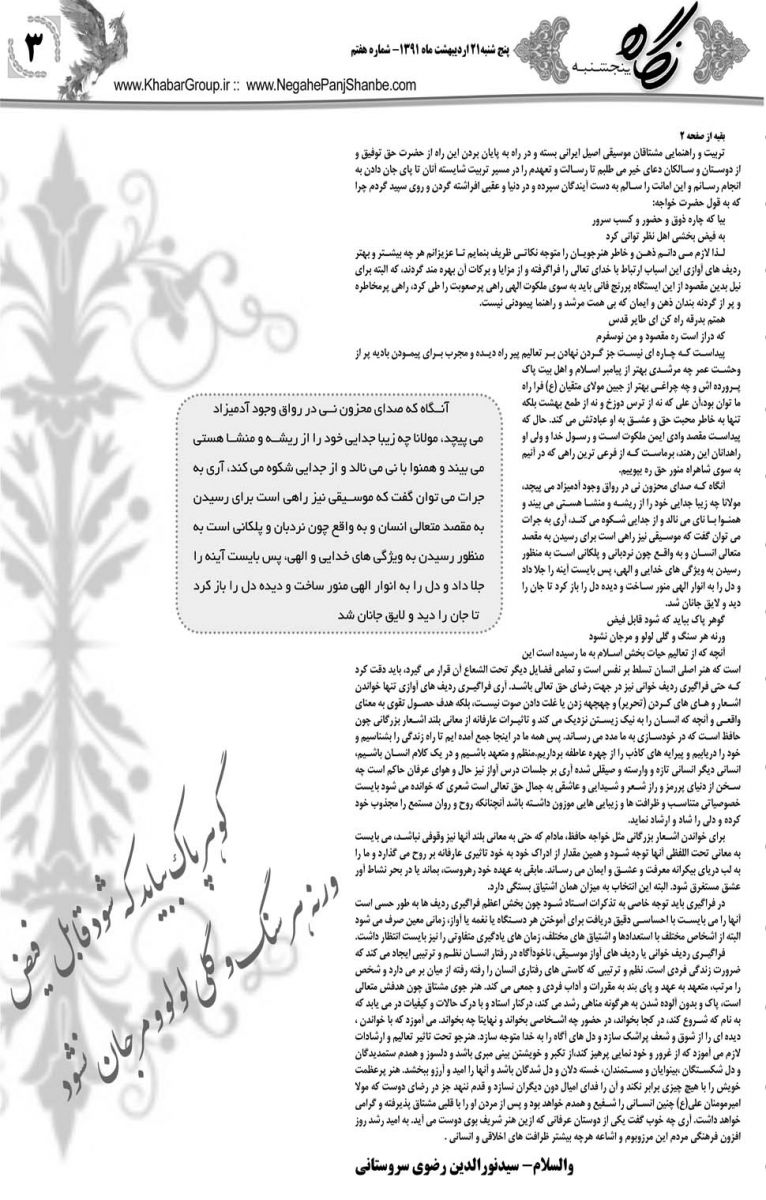 ۳
پنج شنبه۲۱ اردیبهشت ماه ۱۳۹۱- شماره هفتم
نگاه
پنجشنبه
www.KhabarGroup.ir :: www.NegahePanjShanbe.com
بقیه از صفحه ۲
تربیت و راهنمایی مشتاقان موسیقی اصیل ایرانی بسته و در راه به پایان بردن این راه از حضرت حق توفیق و
از دوستان و سالکان دعای خیر می طلبم تا رسالت و تعهدم را در مسیر تربیت شایسته آنان تا پای جان دادن به
انجام رسانم و این امانت را سالم به دست آیندگان سپرده و در دنیا و عقبی افراشته گردن و روی سپید گردم چرا
که به قول حضرت خواجه:
بیا که چاره ذوق و حضور و کسب سرور
به فیض بخشی اهل نظر توانی کرد
لذا لازم می دانم ذهن و خاطر هنرجویان را متوجه نکاتی ظریف بنمایم تا عزیزانم هر چه بیشتر و بهتر
ردیف های آوازی این اسباب ارتباط با خدای تعالی را فراگرفته و از مزایا و برکات آن بهره مند گردند، که البته برای
نیل بدین مقصود از این ایستگاه پررنج فانی باید به سوی ملکوت الهی راهی پرصعوبت را طی کرد، راهی پرمخاطره
و پر از گردنه بندان ذهن و ایمان که بی همت مرشد و راهنما پیمودنی نیست.
همتم بدرقه راه کن ای طایر قدس
که دراز است ره مقصود و من نوسفرم
پیداست که چاره ای نیست جز گردن نهادن بر تعالیم پیر راه دیده و مجرب برای پیمودن بادیه پر از
وحشت عمر چه مرشدی بهتر از پیامبر اسلام و اهل بیت پاک
پرورده اش و چه چراغی بهتر از جبین مولای متقیان (ع) فرا راه
ما توان بود،آن علی که نه از ترس دوزخ و نه از طمع بهشت بلکه
تنها به خاطر محبت حق و عشق به او عبادتش می کند. حال که
پیداست مقصد وادی ایمن ملکوت است و رسول خدا و ولی او
راهدانان این رهند، برماست که از فرعی ترین راهی که در آنیم
به سوی شاهراه منور حق ره بپوییم.
آنگاه که صدای محزون نی در رواق وجود آدمیزاد می پیچد،
مولانا چه زیبا جدایی خود را از ریشه و منشا هستی می بیند و
همنوا با نای می نالد و از جدایی شکوه می کند، آری به جرات
می توان گفت که موسیقی نیز راهی است برای رسیدن به مقصد
متعالی انسان و به واقع چون نردبانی و پلکانی است به منظور
رسیدن به ویژگی های خدایی و الهی، پس بایست آینه را جلا داد
و دل را به انوار الهی منور ساخت و دیده دل را باز کرد تا جان را
دید و لایق جانان شد.
گوهر پاک بباید که شود قابل فیض
ورنه هر سنگ و گلی لولو و مرجان نشود
آنچه که از تعالیم حیات بخش اسلام به ما رسیده است این
است که هنر اصلی انسان تسلط بر نفس است و تمامی فضایل دیگر تحت الشعاع آن قرار می گیرد، باید دقت کرد
که حتی فراگیری ردیف خوانی نیز در جهت رضای حق تعالی باشد. آری فراگیری ردیف های آوازی تنها خواندن
اشعار و های های کردن (تحریر) و چهچهه زدن یا غلت دادن صوت نیست، بلکه هدف حصول تقوی به معنای
واقعی و آنچه که انسان را به نیک زیستن نزدیک می کند و تاثیرات عارفانه از معانی بلند اشعار بزرگانی چون
حافظ است که در خودسازی به ما مدد می رساند. پس همه ما در اینجا جمع آمده ایم تا راه زندگی را بشناسیم و
خود را دریابیم و پیرایه های کاذب را از چهره عاطفه برداریم.منظم و متعهد باشیم و در یک کلام انسان باشیم،
انسانی دیگر انسانی تازه و وارسته و صیقلی شده آری بر جلسات درس آواز نیز حال و هوای عرفان حاکم است چه
سخن از دنیای پررمز و راز شعر و شیدایی و عاشقی به جمال حق تعالی است شعری که خوانده می شود بایست
خصوصیاتی متناسب و ظرافت ها و زیبایی هایی موزون داشته باشد آنچنانکه روح و روان مستمع را مجذوب خود
کرده و دلی را شاد و ارشاد نماید.
برای خواندن اشعار بزرگانی مثل خواجه حافظ، مادام که حتی به معانی بلند آنها نیز وقوفی نباشد، می بایست
به معانی تحت اللفظی آنها توجه شود و همین مقدار از ادراک خود به خود تاثیری عارفانه بر روح می گذارد و ما را
به لب دریای بیکرانه معرفت و عشق و ایمان می رساند. مابقی به عهده خود رهروست، بماند یا در بحر نشاط آور
عشق مستغرق شود. البته این انتخاب به میزان همان اشتیاق بستگی دارد.
در فراگیری باید توجه خاصی به تذکرات استاد شود چون بخش اعظم فراگیری ردیف ها به طور حسی است
آنها را می بایست با احساسی دقیق دریافت برای آموختن هر دستگاه یا نغمه یا آواز، زمانی معین صرف می شود
البته از اشخاص مختلف با استعدادها و اشتیاق های مختلف، زمان های یادگیری متفاوتی را نیز بایست انتظار داشت.
فراگیری ردیف خوانی یا ردیف های آواز موسیقی، ناخودآگاه در رفتار انسان نظم و ترتیبی ایجاد می کند که
ضرورت زندگی فردی است. نظم و ترتیبی که کاستی های رفتاری انسان را رفته رفته از میان بر می دارد و شخص
را مرتب، متعهد به عهد و پای بند به مقررات و آداب فردی و جمعی می کند. هنر جوی مشتاق چون هدفش متعالی
است، پاک و بدون آلوده شدن به هرگونه مناهی رشد می کند، درکنار استاد و با درک حالات و کیفیات در می یابد که
به نام که شروع کند، در کجا بخواند، در حضور چه اشخاصی بخواند و نهایتا چه بخواند. می آموزد که با خواندن ،
دیده ای را از شوق و شعف پراشک سازد و دل های آگاه را به خدا متوجه سازد. هنرجو تحت تاثیر تعالیم و ارشادات
لازم می آموزد که از غرور و خود نمایی پرهیز کند،از تکبر و خویشتن بینی مبری باشد و دلسوز و همدم ستمدیدگان
و دل شکستگان ،بینوایان و مستمندان، خسته دلان و دل شدگان باشد و آنها را امید و آرزو ببخشد. هنر پرعظمت
خویش را با هیچ چیزی برابر نکند و آن را فدای امیال دون دیگران نسازد و قدم ننهد جز در رضای دوست که مولا
امیرمومنان علی(ع) چنین انسانی را شفیع و همدم خواهد بود و پس از مردن او را با قلبی مشتاق پذیرفته و گرامی
خواهد داشت. آری چه خوب گفت یکی از دوستان عرفانی که ازین هنر شریف بوی دوست می آید. به امید رشد روز
افزون فرهنگی مردم این مرزوبوم و اشاعه هرچه بیشتر ظرافت های اخلاقی و انسانی .
والسلام- سیدنورالدین رضوی سروستانی
آنگاه که صدای محزون نی در رواق وجود آدمیزاد
می پیچد، مولانا چه زیبا جدایی خود را از ریشه و منشا هستی
می بیند و همنوا با نی می نالد و از جدایی شکوه می کند، آری به
جرات می توان گفت که موسیقی نیز راهی است برای رسیدن
به مقصد متعالی انسان و به واقع چون نردبان و پلکانی است به
منظور رسیدن به ویژگی های خدایی و الهی، پس بایست آینه را
جلا داد و دل را به انوار الهی منور ساخت و دیده دل را باز کرد
تا جان را دید و لایق جانان شد
گوهر پاک بباید که شود قابل فیض
ورنه هر سنگ و گلی لولو و مرجان نشود